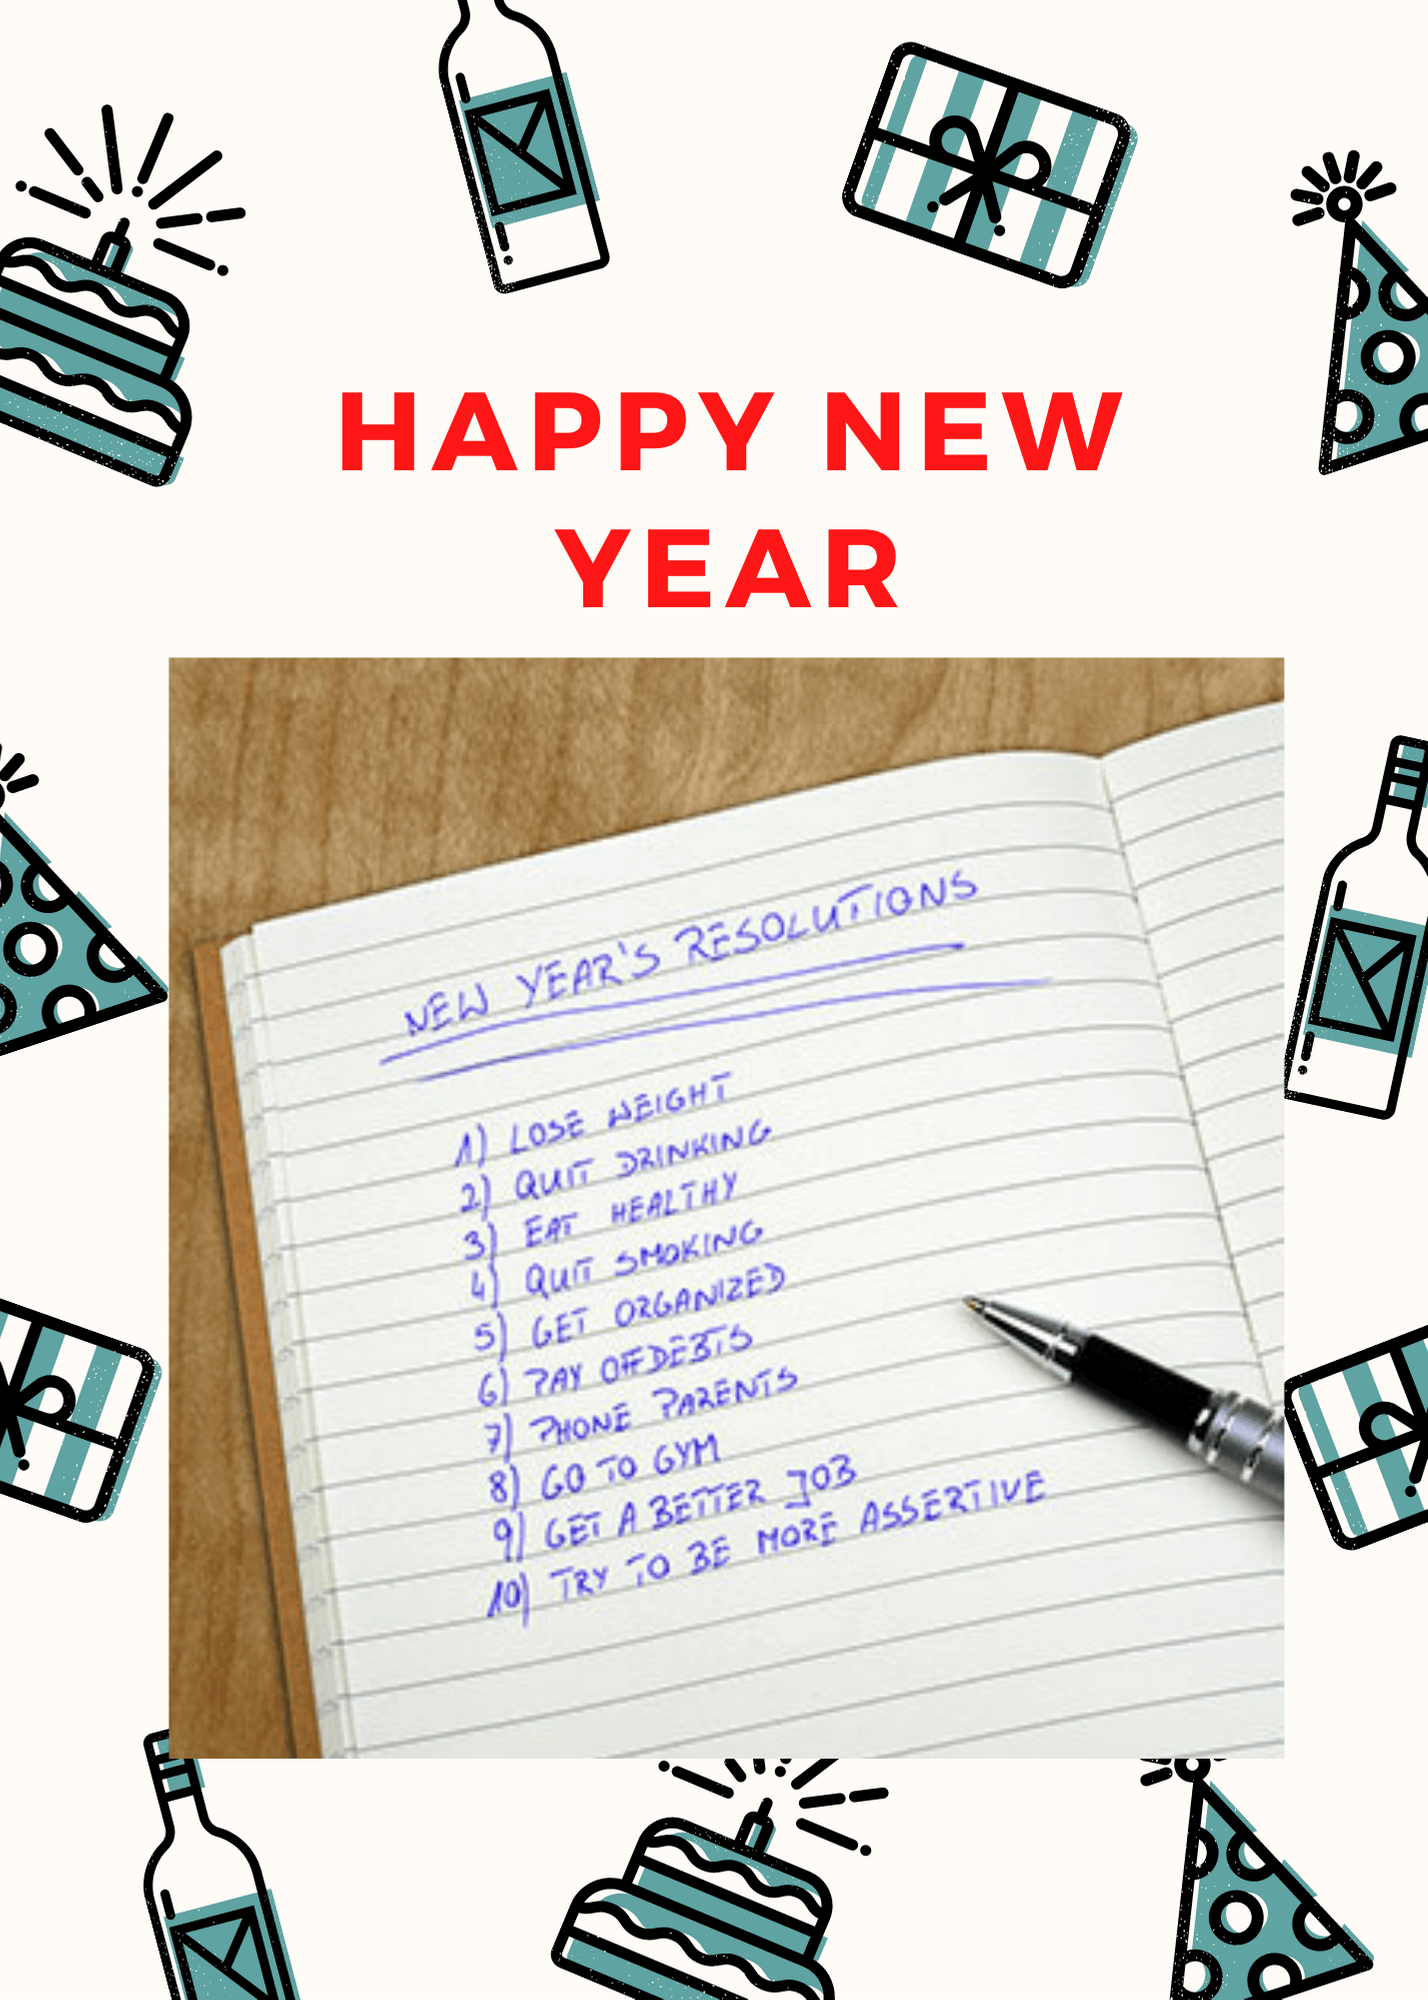 HAPPY NEW
YEAR
NEW YEAR'S RESOLUTIONS
1) LOSE WEIGHT
2) QUIT DRINKING
3) EAT HEALTHY
4) QUIT SMOKING
5) GET ORGANIZED
6) PAY OFF DEBTS
7) PHONE PARENTS
8) GO TO GYM
9) GET A BETTER JOB
10) TRY TO BE MORE ASSERTIVE